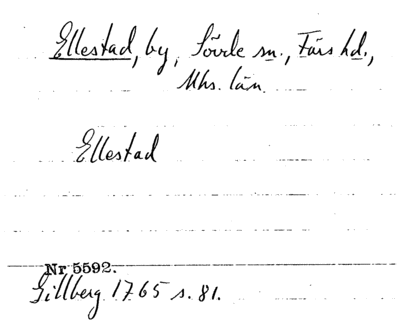 Ellestad, by, Sövde sn., Färs hd.,
Mhs. län.
Ellestad
Nr 5592.
Gillberg 1765 s. 81.